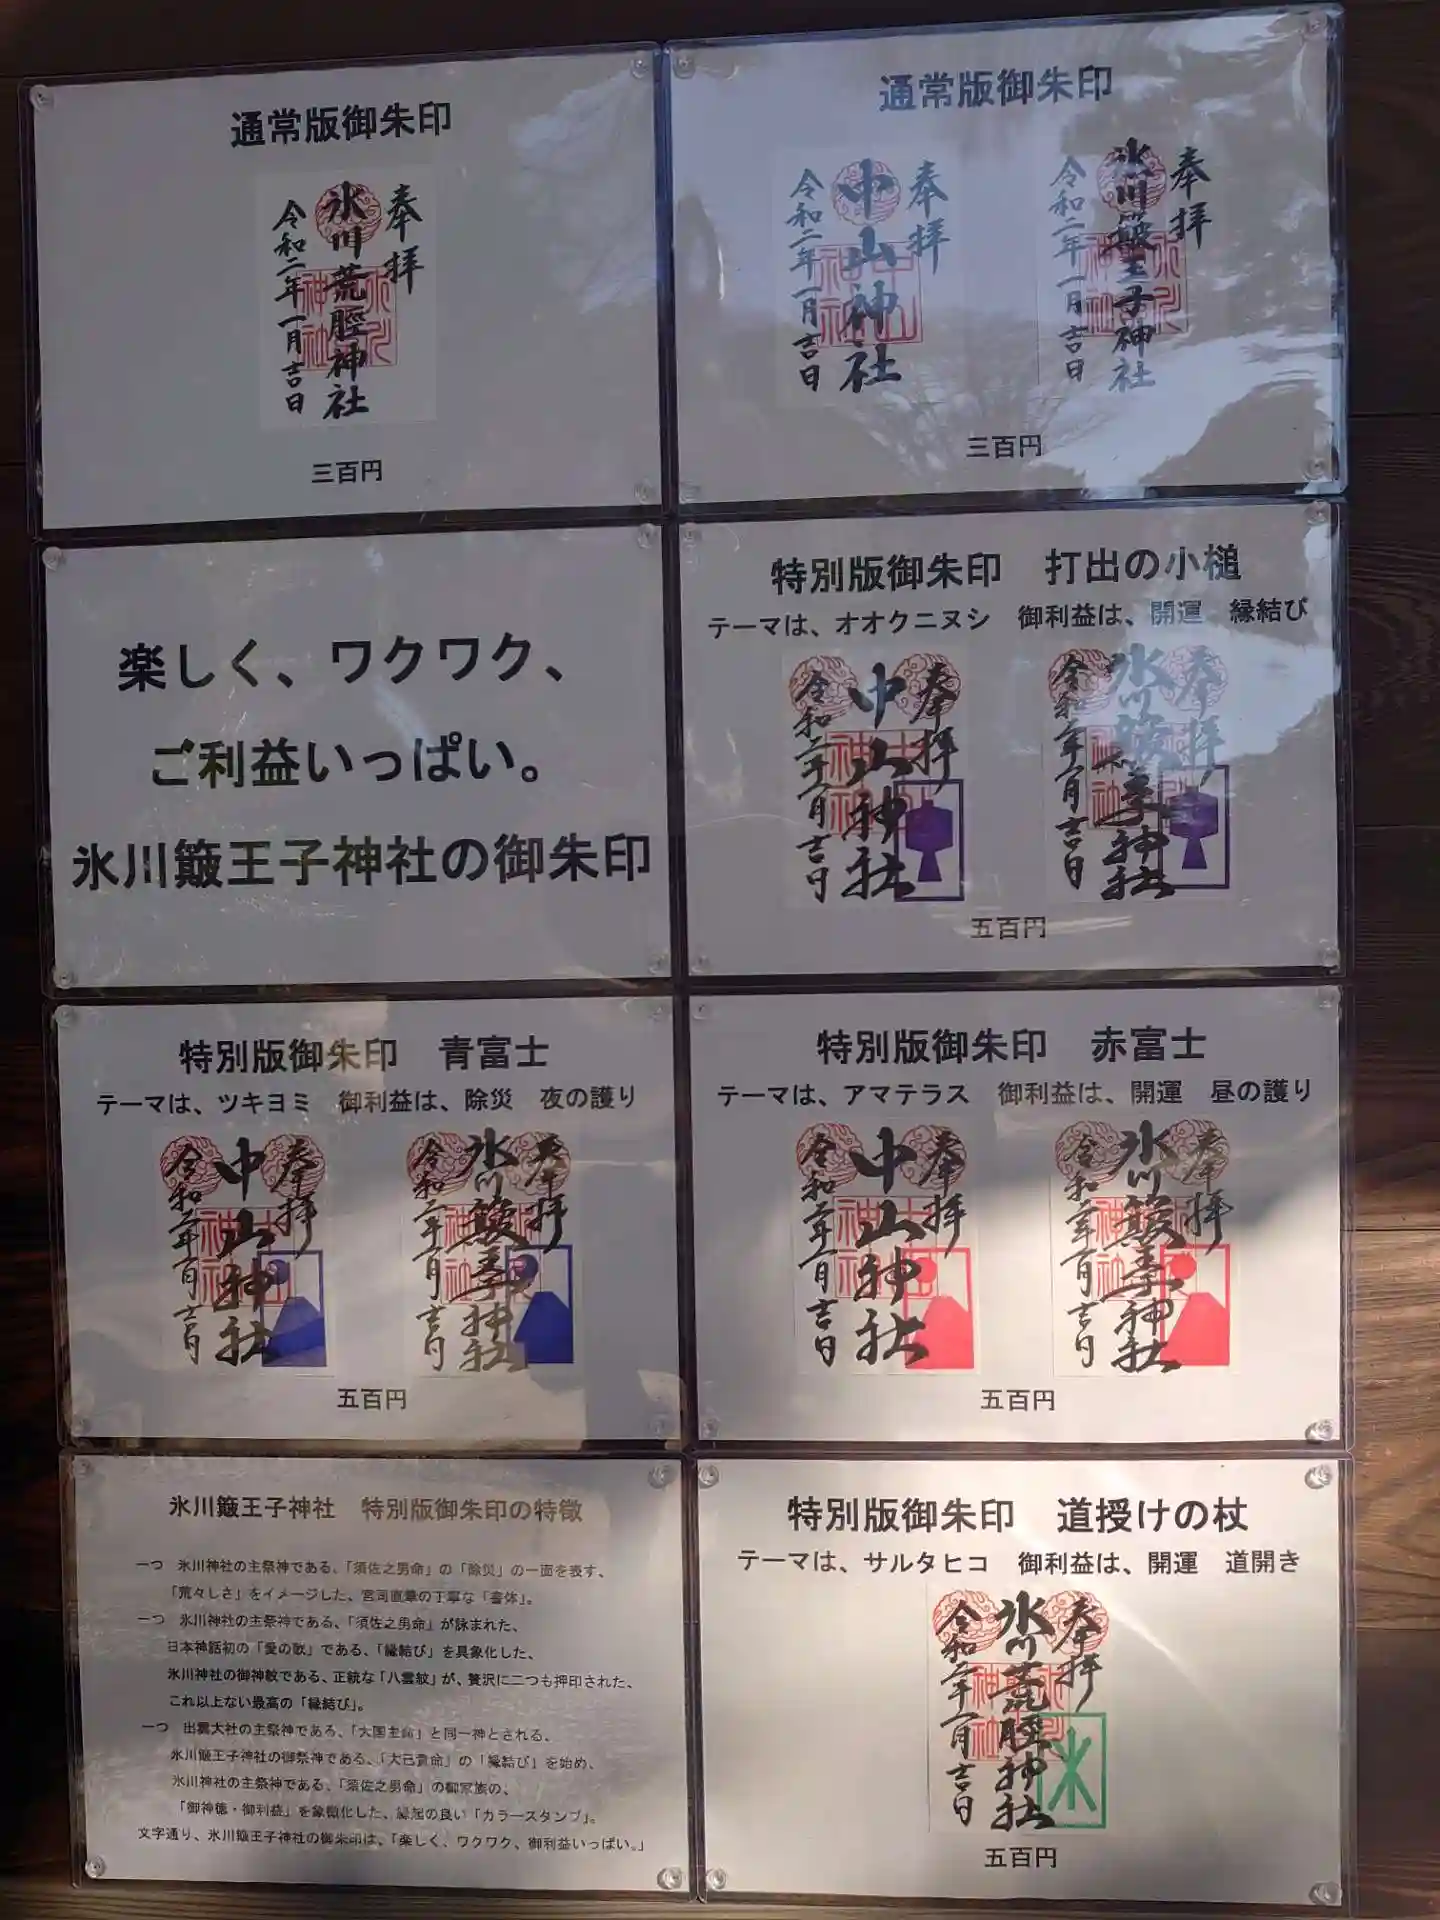 通常版御朱印
奉拝
氷川荒脛神社
令和二年一月吉日
三百円
通常版御朱印
奉拝
氷川簸王子神社
令和二年一月吉日
奉拝
中山神社
令和二年一月吉日
三百円
楽しく、ワクワク、
ご利益いっぱい。
氷川簸王子神社の御朱印
特別版御朱印　打出の小槌
テーマは、オオクニヌシ　御利益は、開運　縁結び
奉拝
氷川簸王子神社
令和二年一月吉日
奉拝
中山神社
令和二年一月吉日
五百円
特別版御朱印　青富士
テーマは、ツキヨミ　御利益は、除災　夜の護り
奉拝
氷川簸王子神社
令和二年一月吉日
奉拝
中山神社
令和二年一月吉日
五百円
特別版御朱印　赤富士
テーマは、アマテラス　御利益は、開運　昼の護り
奉拝
氷川簸王子神社
令和二年一月吉日
奉拝
中山神社
令和二年一月吉日
五百円
氷川簸王子神社　特別版御朱印の特徴
一つ　氷川神社の主祭神である、「須佐之男命」の「除災」の一面を表す、
「荒々しさ」をイメージした、宮司直筆の丁寧な「書体」。
一つ　氷川神社の主祭神である、「須佐之男命」が詠まれた、
日本神話初の「愛の歌」である、「縁結び」を具象化した、
氷川神社の御神紋である、正統な「八雲紋」が、贅沢に二つも押印された、
これ以上ない最高の「縁結び」。
一つ　出雲大社の主祭神である、「大国主命」と同一神とされる、
氷川簸王子神社の御祭神である、「大己貴命」の「縁結び」を始め、
氷川神社の主祭神である、「須佐之男命」の御家族の、
「御神徳・御利益」を象徴化した、縁起の良い「カラースタンプ」。
文字通り、氷川簸王子神社の御朱印は、「楽しく、ワクワク、御利益いっぱい。」
特別版御朱印　道授けの杖
テーマは、サルタヒコ　御利益は、開運　道開き
奉拝
氷川荒脛神社
令和二年一月吉日
五百円